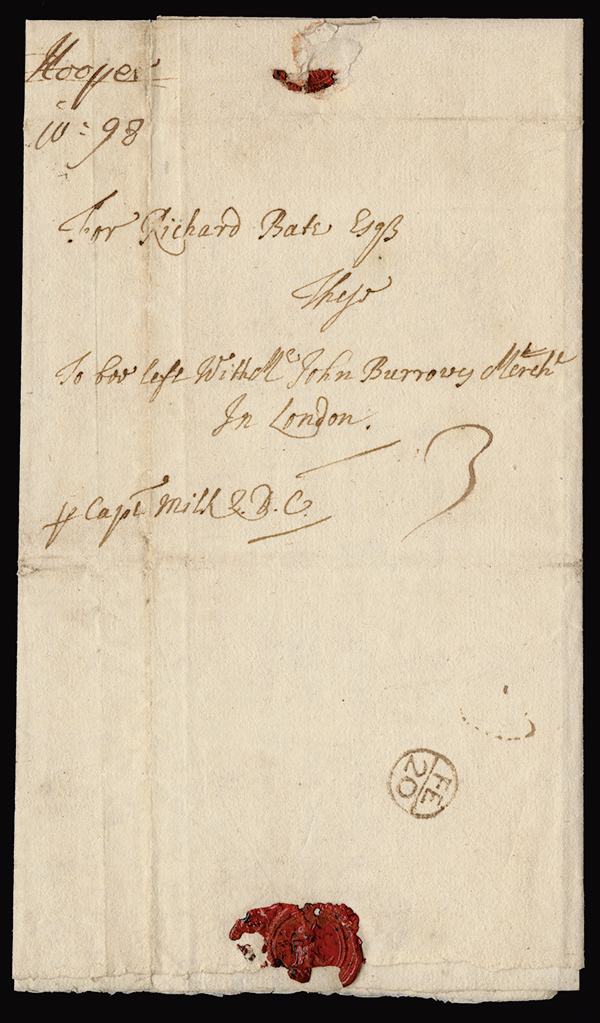 Hooper
10: 98
For Richard Bate Esqr
These
To bee left With Mr John Burrows Mercht
In London.
3
p Capt Mill &. D. C.
FE
20